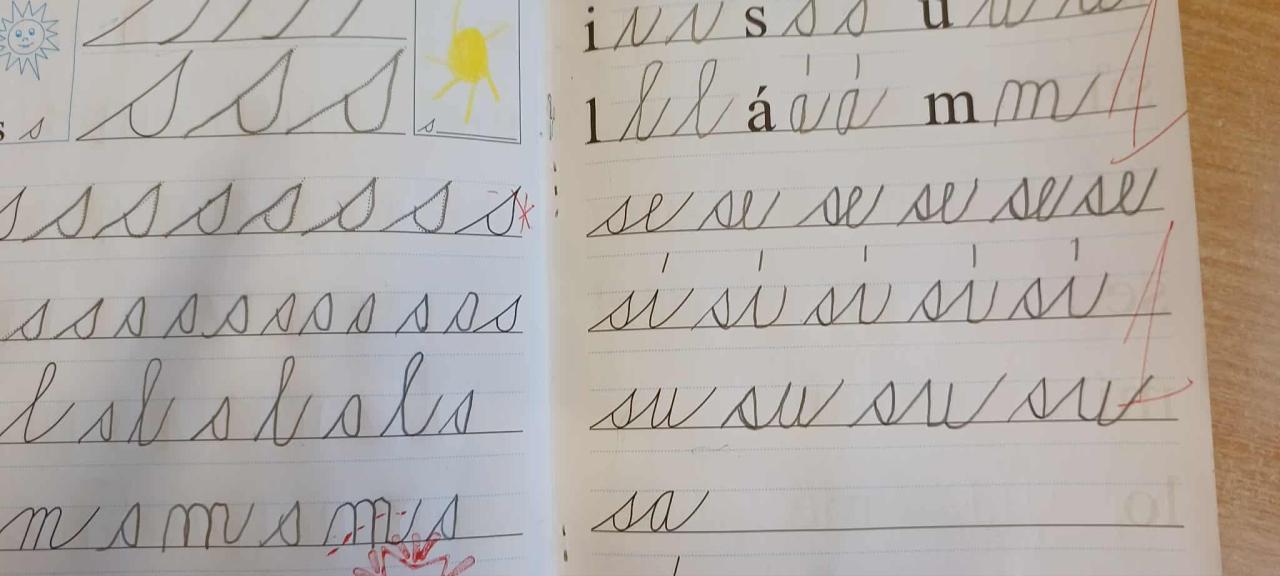 s s s s s s
s s s s s s s s
s s s s s s s s s s s
l s l s l s l s
m s m s m s
i i i s s s u u u
l l l á á á m m
se se se se se se
sí sí sí sí sí
su su su su
sa